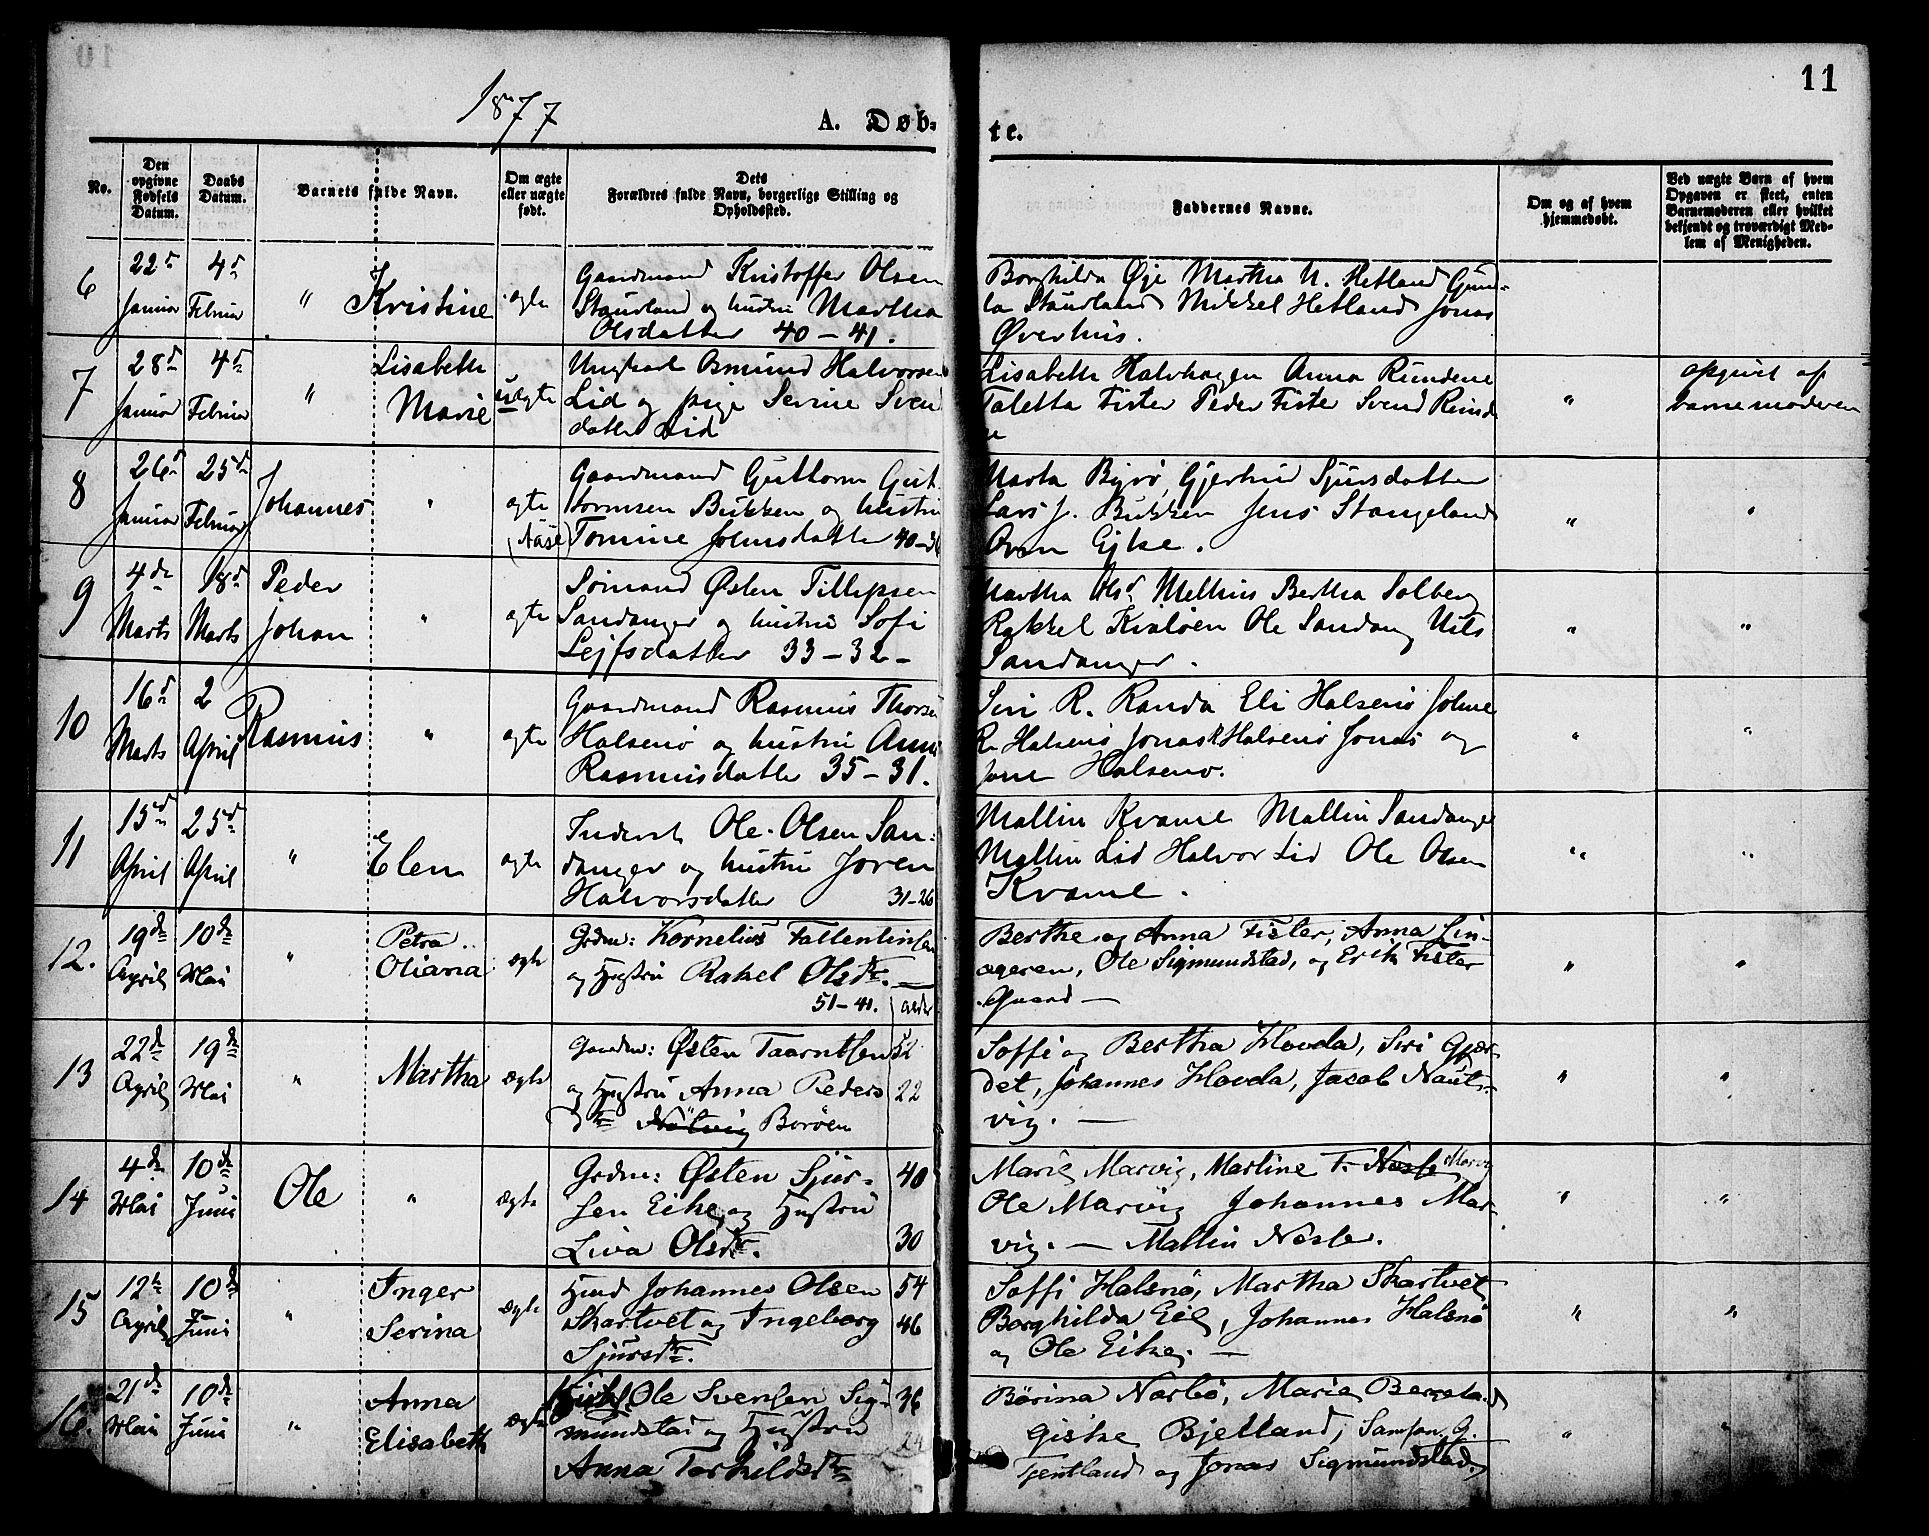 1877
11
A. Døb-
te.
No.
Den opgivne Fødsels Datum.
Daabs Datum.
Barnets fulde Navn.
Om ægte eller uægte født.
Dets
Forældres fulde Navn, borgerlige Stilling og
Opholdssted.
Faddernes Navne.
Om og af hvem
hjemmedøbt.
Ved uægte Børn af hvem
Opgaven er skeet, enten
Barnemoderen eller hvilket
bekjendt og troværdigt Med-
lem af Menigheden.
6 22d Januar 4d Februar " Kristine ægte
Gaardmand Kristoffer Olsen
Staurland og hustru Martha
Olsdatter 40-41.
Borghilda Øje Martha N. Hetland Gun-
la Staurland Mikkel Hetland Jonas
Øverhus.
7 28d Januar 4d Februar " Lisabeth Marie uægte
Ungkarl Osmund Halvorsen
Lid og pige Serine Svend
datter Lid
Lisabeth Halvhagen Anna Rundene
Taletta Fister Peder Fister Svend Runde
ne
"
opgivet af
barnemoderen
8 26d Januar 25d Februar Johannes " ægte
Gaardmand Guttorm Gut
tormsen Bukken og hustru
Tomine Johnsdatter 40-36
Marta Byrø, Gjertrud Sjursdatter
Lars J. Bukken Jens Stangeland
Oven Ejke.
" "
9 4de Marts 18d Marts Peder Johan " ægte
Sømand Østen Tillefsen
Sandanger og hustru Sofi
Lejfsdatter 33-32-
Martha Olsd. Melhus Bertha Solberg
Rakkel Kvaløen Ole Sandang Nils
Sandanger.
" "
10 16d Marts 2 April Rasmus " ægte
Gaardmand Rasmus Thorsen
Halsenø og hustru Anna
Rasmusdatter 35-31.
Siri R. Randa Eli Halsenø Johne
R. Halsenø Jonas R Halsenø Jonas og
Jone Halsenø.
" "
11 15d April 25d April " Elen ægte
Inderst Ole Olsen San-
danger og hustru Joren
Halvorsdatter 31-26
Mallin Kvame Mallin Sandange
Mallin Lid Halvor Lid Ole Olsen
Kvame.
" "
12. 19de April 10de Mai " Petra Oliana ægte
Grdm: Kornelius Fallentinsen
og Hustru Rakel Olsdtr. —
51-41. alder
Berthe og Anna Fister, Anna Lin-
ageren, Ole Sigmundstad, og Erik Fister
Gaard —
" "
13 22de April 19de Mai " Martha ægte
Gaardm: Østen Taarntsen 52
og Hustru Anna Peders 22
dtr Nøtvig Borøen
Soffi og Bertha Hovda, Siri Gjær-
det, Johannes Hovda, Jacob Naut-
vig. —
" "
14 4de Mai 10de Juni Ole " ægte
Grdm: Østen Sjur- 40
sen Eike og Hustru
Liva Olsdtr. 30
Marie Marvig, Martine T. Nesse Marvig
Ole Marvig Johannes Mar-
vig. — Mallin Nesse.
" "
15 12te April 10de Juni " Inger Serina ægte
Husmd Johannes Olsen 54
Skartvet og Ingeborg 46
Sjursdtr.
Soffi Halsnø, Martha Skartvet
Borghilda Eie, Johannes Halsnø
og Ole Eike. —
" "
16. 21de Mai 10de Juni " Anna Elisabeth ægte
Ole Svensen Sig- 36
mundstad og Hustru
Anna Torkildsdtr
Børina Narbø, Marie Bergeland
Giske Bjelland, Samson G.
Tjentland og Jonas Sigmundstad.
" "